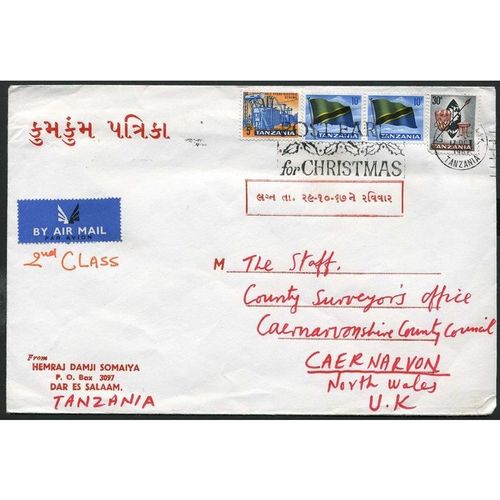 5c TANZANIA
10c TANZANIA
10c TANZANIA
30c TANZANIA
કુમકુંમ પત્રિકા
POST EARLY
for CHRISTMAS
TANZANIA
લગ્ન તા. ૨૯-૧૦-૬૭ ને રવિવાર
BY AIR MAIL
PAR AVION
2nd CLASS
M The Staff,
County Surveyor's office
Caernarvonshire County Council
CAERNARVON
North Wales
U.K
From
HEMRAJ DAMJI SOMAIYA
P. O. Box 3097
DAR ES SALAAM.
TANZANIA